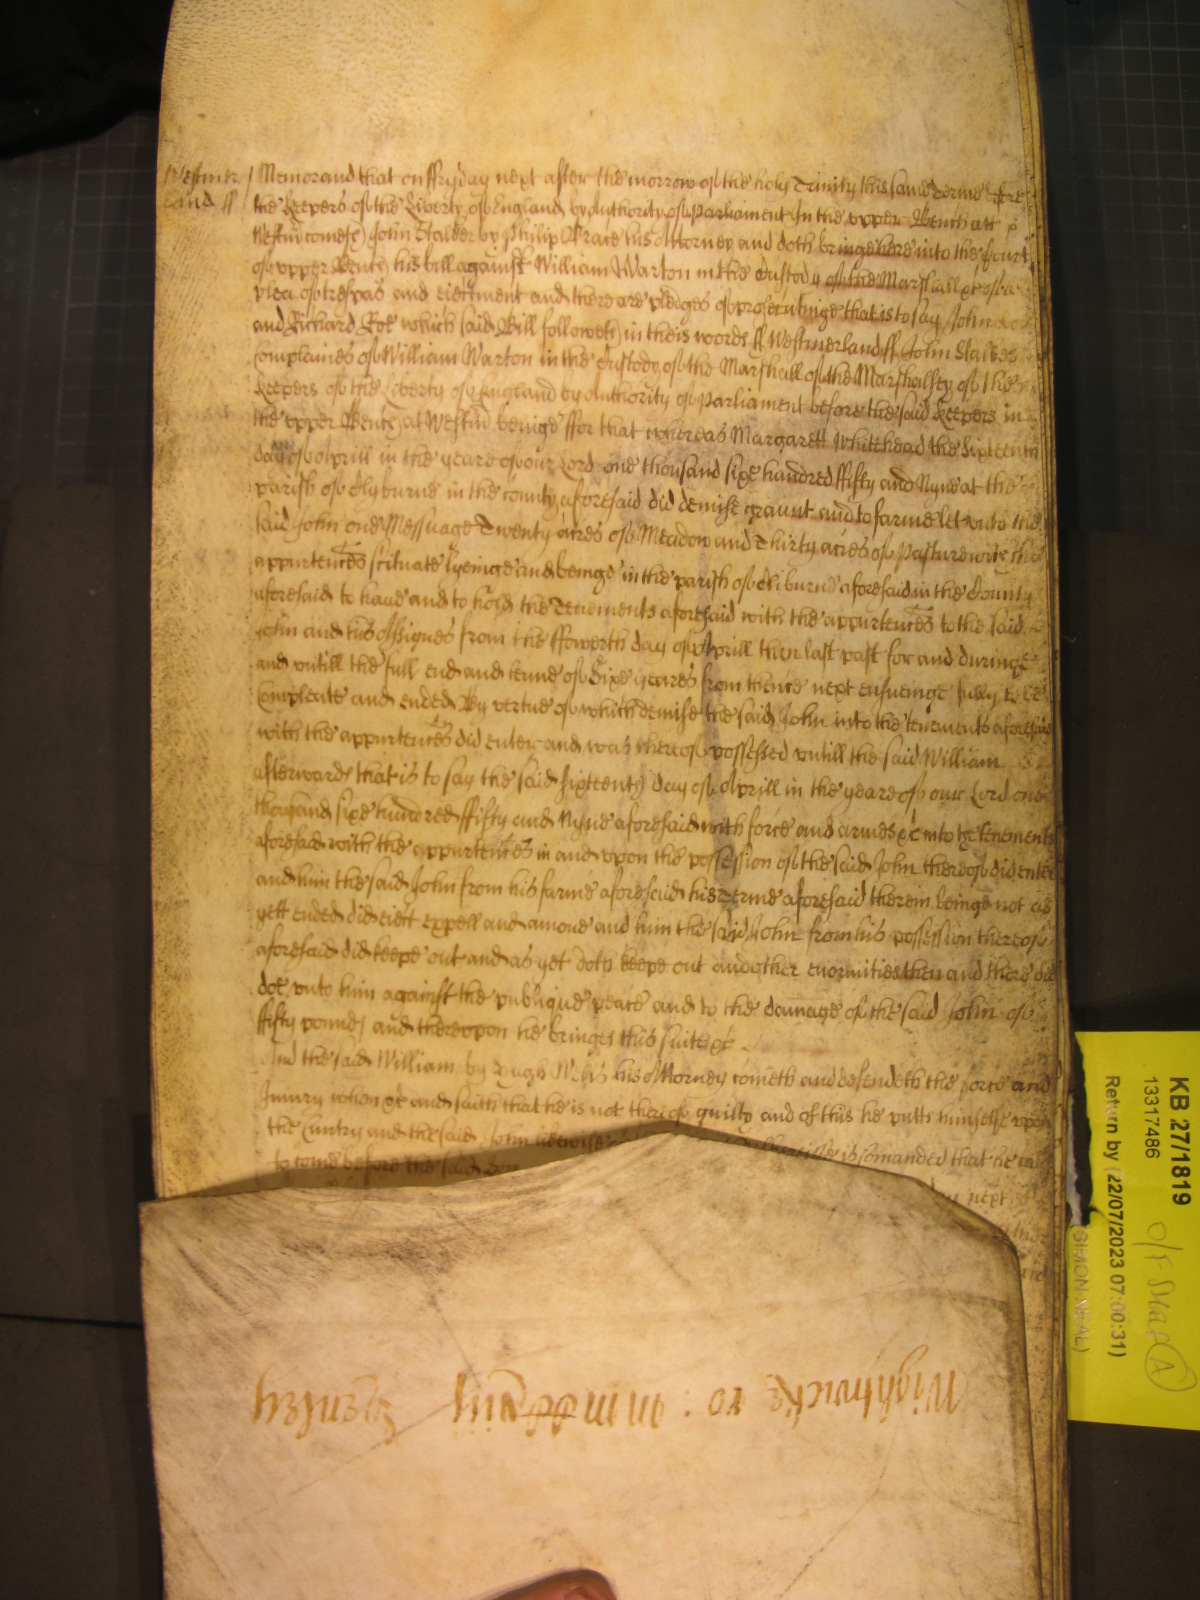 Westmer
land ss
Memorand that on ffryday next after the morrow of the holy Trinity this same Terme before
the Keepers of the Liberty of England by Authority of Parliament In the upper Bench att
Westm comes John Stalker by Philip his Attorney and doth bringe here into the Court
of upper Bench his bill against William Warton in the Custody of the Marshall &c of a
plea of trespas and eiectment and there are pledges of prosecutinge that is to say John
and Richard Roe which said Bill followeth in theis words ss Westmerland ss John Stalker
complaines of William Warton in the Custody of the Marshall of the Marshalsey of the
Keepers of the Liberty of England by Authority of Parliament before the said Keepers in
the upper Bench at Westm beinge ffor that whereas Margarett Whitehead the Sixteenth
day of Aprill in the yeare of our Lord one thousand sixe hundred ffifty and Nyne at the
parish of Clyburne in the county aforesaid did demise graunt and to farme let unto the
said John one Messuage Twenty acres of Meadow and Thirty acres of Pasture with the
appurtences scituate lyeinge and beinge in the parish of Cliburne aforesaid in the County
aforesaid to have and to hold the Tenements aforesaid with the appurtences to the said
John and his Assignes from the ffowerth day of Aprill then last past for and duringe
and untill the full end and terme of Sixe yeares from thence next ensueinge fully to be
compleate and ended By vertue of which demise the said John into the tenements aforesaid
with the appurtences did enter and was thereof possessed untill the said William
afterwards that is to say the said sixteenth day of Aprill in the yeare of our Lord one
thousand sixe hundred ffifty and Nyne aforesaid with force and armes &c into the tenements
aforesaid with the appurtences in and upon the possession of the said John thereof did enter
and him the said John from his farme aforesaid his Terme aforesaid therein beinge not as
yett ended did eiect expell and amove and him the said John from his possession thereof
aforesaid did keepe out and as yet doth keepe out and other enormities then and there did
doe unto him against the publique peace and to the damage of the said John of
ffifty pounds and thereupon he bringes this suite &c
And the said William by Hugh his Attorney cometh and defendeth the force and
Iniury when &c and saith that he is not thereof guilty and of this he putts himselfe upon
the Cuntry and the said John likewise is comanded that he
to come before the said
next
Wightwicke ro:
KB 27/1819
13317486
Return by (22/07/2023 07:00:31)
SIMON NEAL)
O/F
A